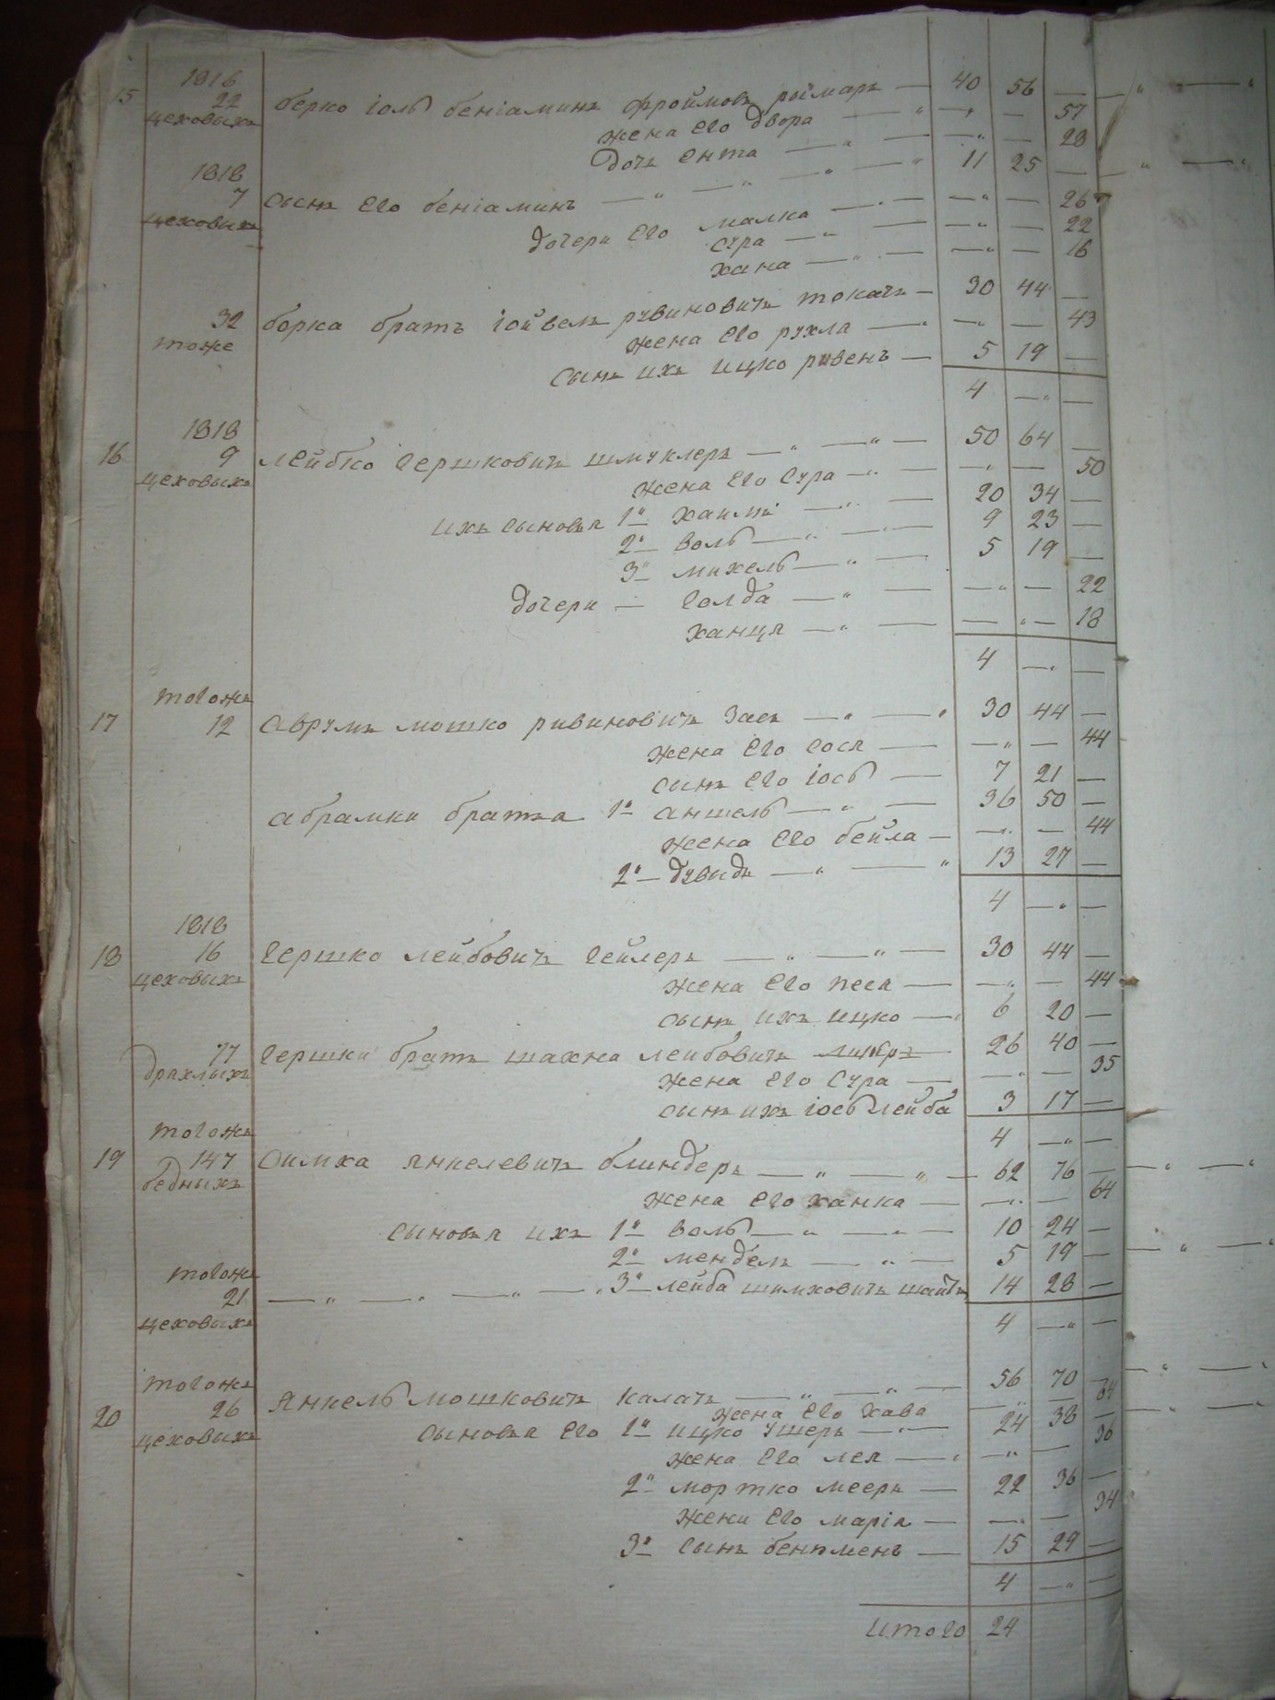 1816
15 22 берко іоль беніаминъ фроймовъ роймаръ — 40 56 —
цеховыхъ жена Его двора — „ — 57
дочь Ента — „ — 28
1818 11 25 —
7 сынъ Его беніаминъ — „ — „ —
цеховыхъ дочери Его малка — „ — 26
сура — „ — 22
хана — „ — 16
32 борка братъ іойвель рувиновичъ токачъ — 30 44 —
тоже жена Его рухля — „ — 43
сынъ ихъ ицко рувенъ — 5 19 —
4 — „ —
1818
16 9 лейбко гершковичъ шмуклеръ — „ — „ — 50 64 —
цеховыхъ жена Его Сура — „ — 50
ихъ сыновья 1й хаимъ — „ — 20 34 —
2й воль — „ — 9 23 —
3й михель — „ — 5 19 —
дочери — голда — „ — 22
ханця — „ — 18
4 — „ —
тогожъ
17 12 аврумъ мошко рувиновичъ заецъ — „ — „ 30 44 —
жена Его Сося — „ — 44
сынъ Его іось — 7 21 —
абрамки братья 1й аншель — „ — 36 50 —
жена Его бейла — „ — 44
2й — дувидъ — „ — „ 13 27 —
4 — „ —
1818
18 16 гершко лейбовичъ гейлеръ — „ — „ — 30 44 —
цеховыхъ жена Его песя — „ — 44
сынъ ихъ ицко — „ 6 20 —
77 гершки братъ шахна лейбовичъ — 26 40 —
дряхлыхъ жена Его Сура — „ — 35
сынъ ихъ іось лейба 3 17 —
тогожъ 4 — „ —
19 147 Симха янкелевичъ блиндеръ — „ — „ — 62 76 —
бедныхъ жена Его ханка — „ — 64
сыновья ихъ 1й воль — „ — „ — 10 24 —
2й мендель — „ — 5 19 —
тогожъ
21 — „ — „ — „ — „ 3й — лейба шимховичъ 14 28 —
цеховыхъ 4 — „ —
тогожъ
20 26 янкель мошковичъ калачъ — „ — „ — 56 70 —
жена Его хава — „ — 64
цеховыхъ сыновья Его 1й ицко ушеръ — „ — 24 38 —
жена Его лея — „ — „ — 36
2й мортко мееръ — 22 36 —
жена Его марія — „ — 34
3й сынъ бенюменъ — 15 29 —
4 — „ —
итого 24